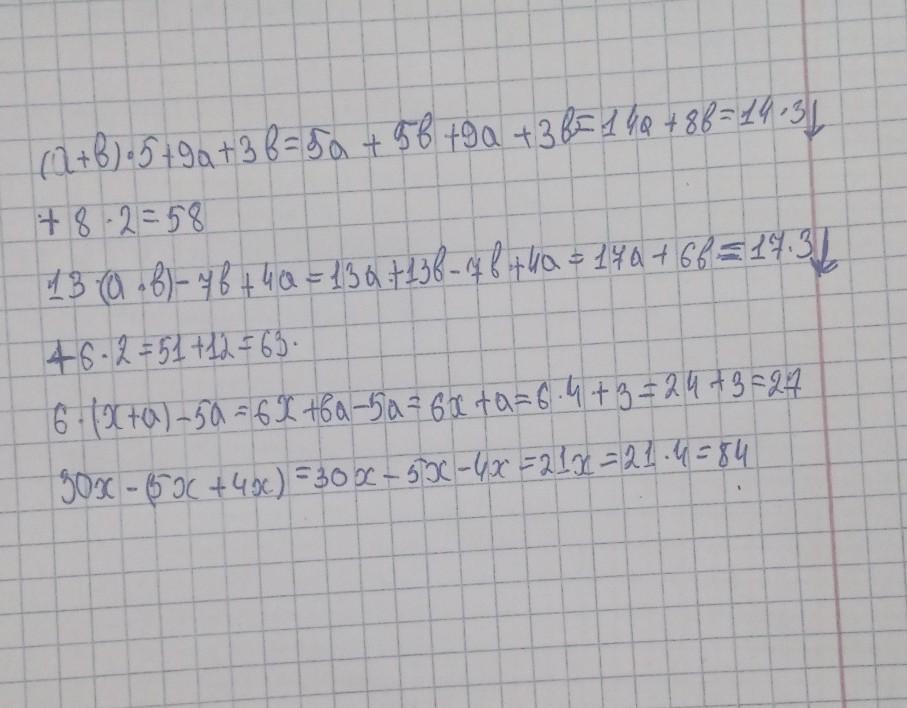 (a+в)·5+9a+3в=5a+5в+9a+3в=14a+8в=14·3↓
+8·2=58
13·(a·в)-7в+4a=13a+13в-7в+4a=17a+6в=17·3↓
+6·2=51+12=63.
6·(x+a)-5a=6x+6a-5a=6x+a=6·4+3=24+3=27
30x-(5x+4x)=30x-5x-4x=21x=21·4=84